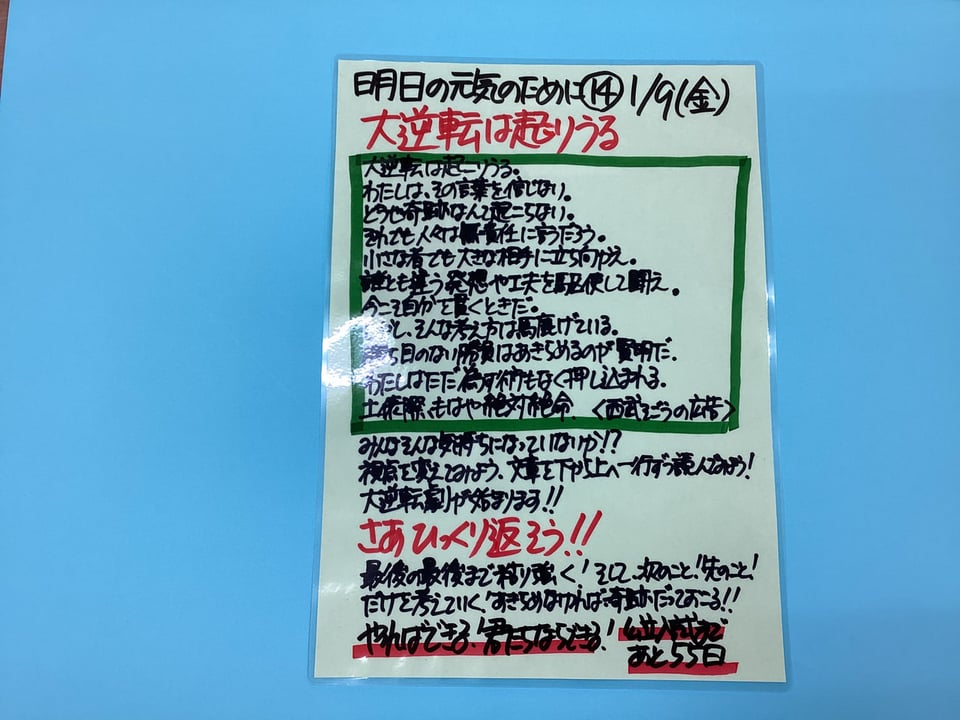 明日の元気のために⑭ 1/9(金)
大逆転は起りうる
大逆転は起こりうる。
わたしは、その言葉を信じない。
どうせ奇跡なんて起こらない。
それでも人々は無責任に言うだろう。
小さな者でも大きな相手に立ち向かえ。
誰とも違う発想や工夫を駆使して闘え。
今こそ自分を貫くときだ。
し、そんな考え方は馬鹿げている。
ち目のない勝負はあきらめるのが賢明だ。
わたしはただ為す術もなく押し込まれる。
土俵際、もはや絶対絶命、〈西武そごうの広告〉
みんなそんな気持ちになっていないか!?
視点を変えてみよう、文章を下から上へ一行ずつ読んでみよう!
大逆転劇が始まります!!
さあひっくり返そう!!
最後の最後まで粘り強く!そして、次のこと!先のこと!
だけを考えていく!あきらめなければ奇跡だっておこる!!
やればできる!君たちならできる! 公立入試まで
あと55日